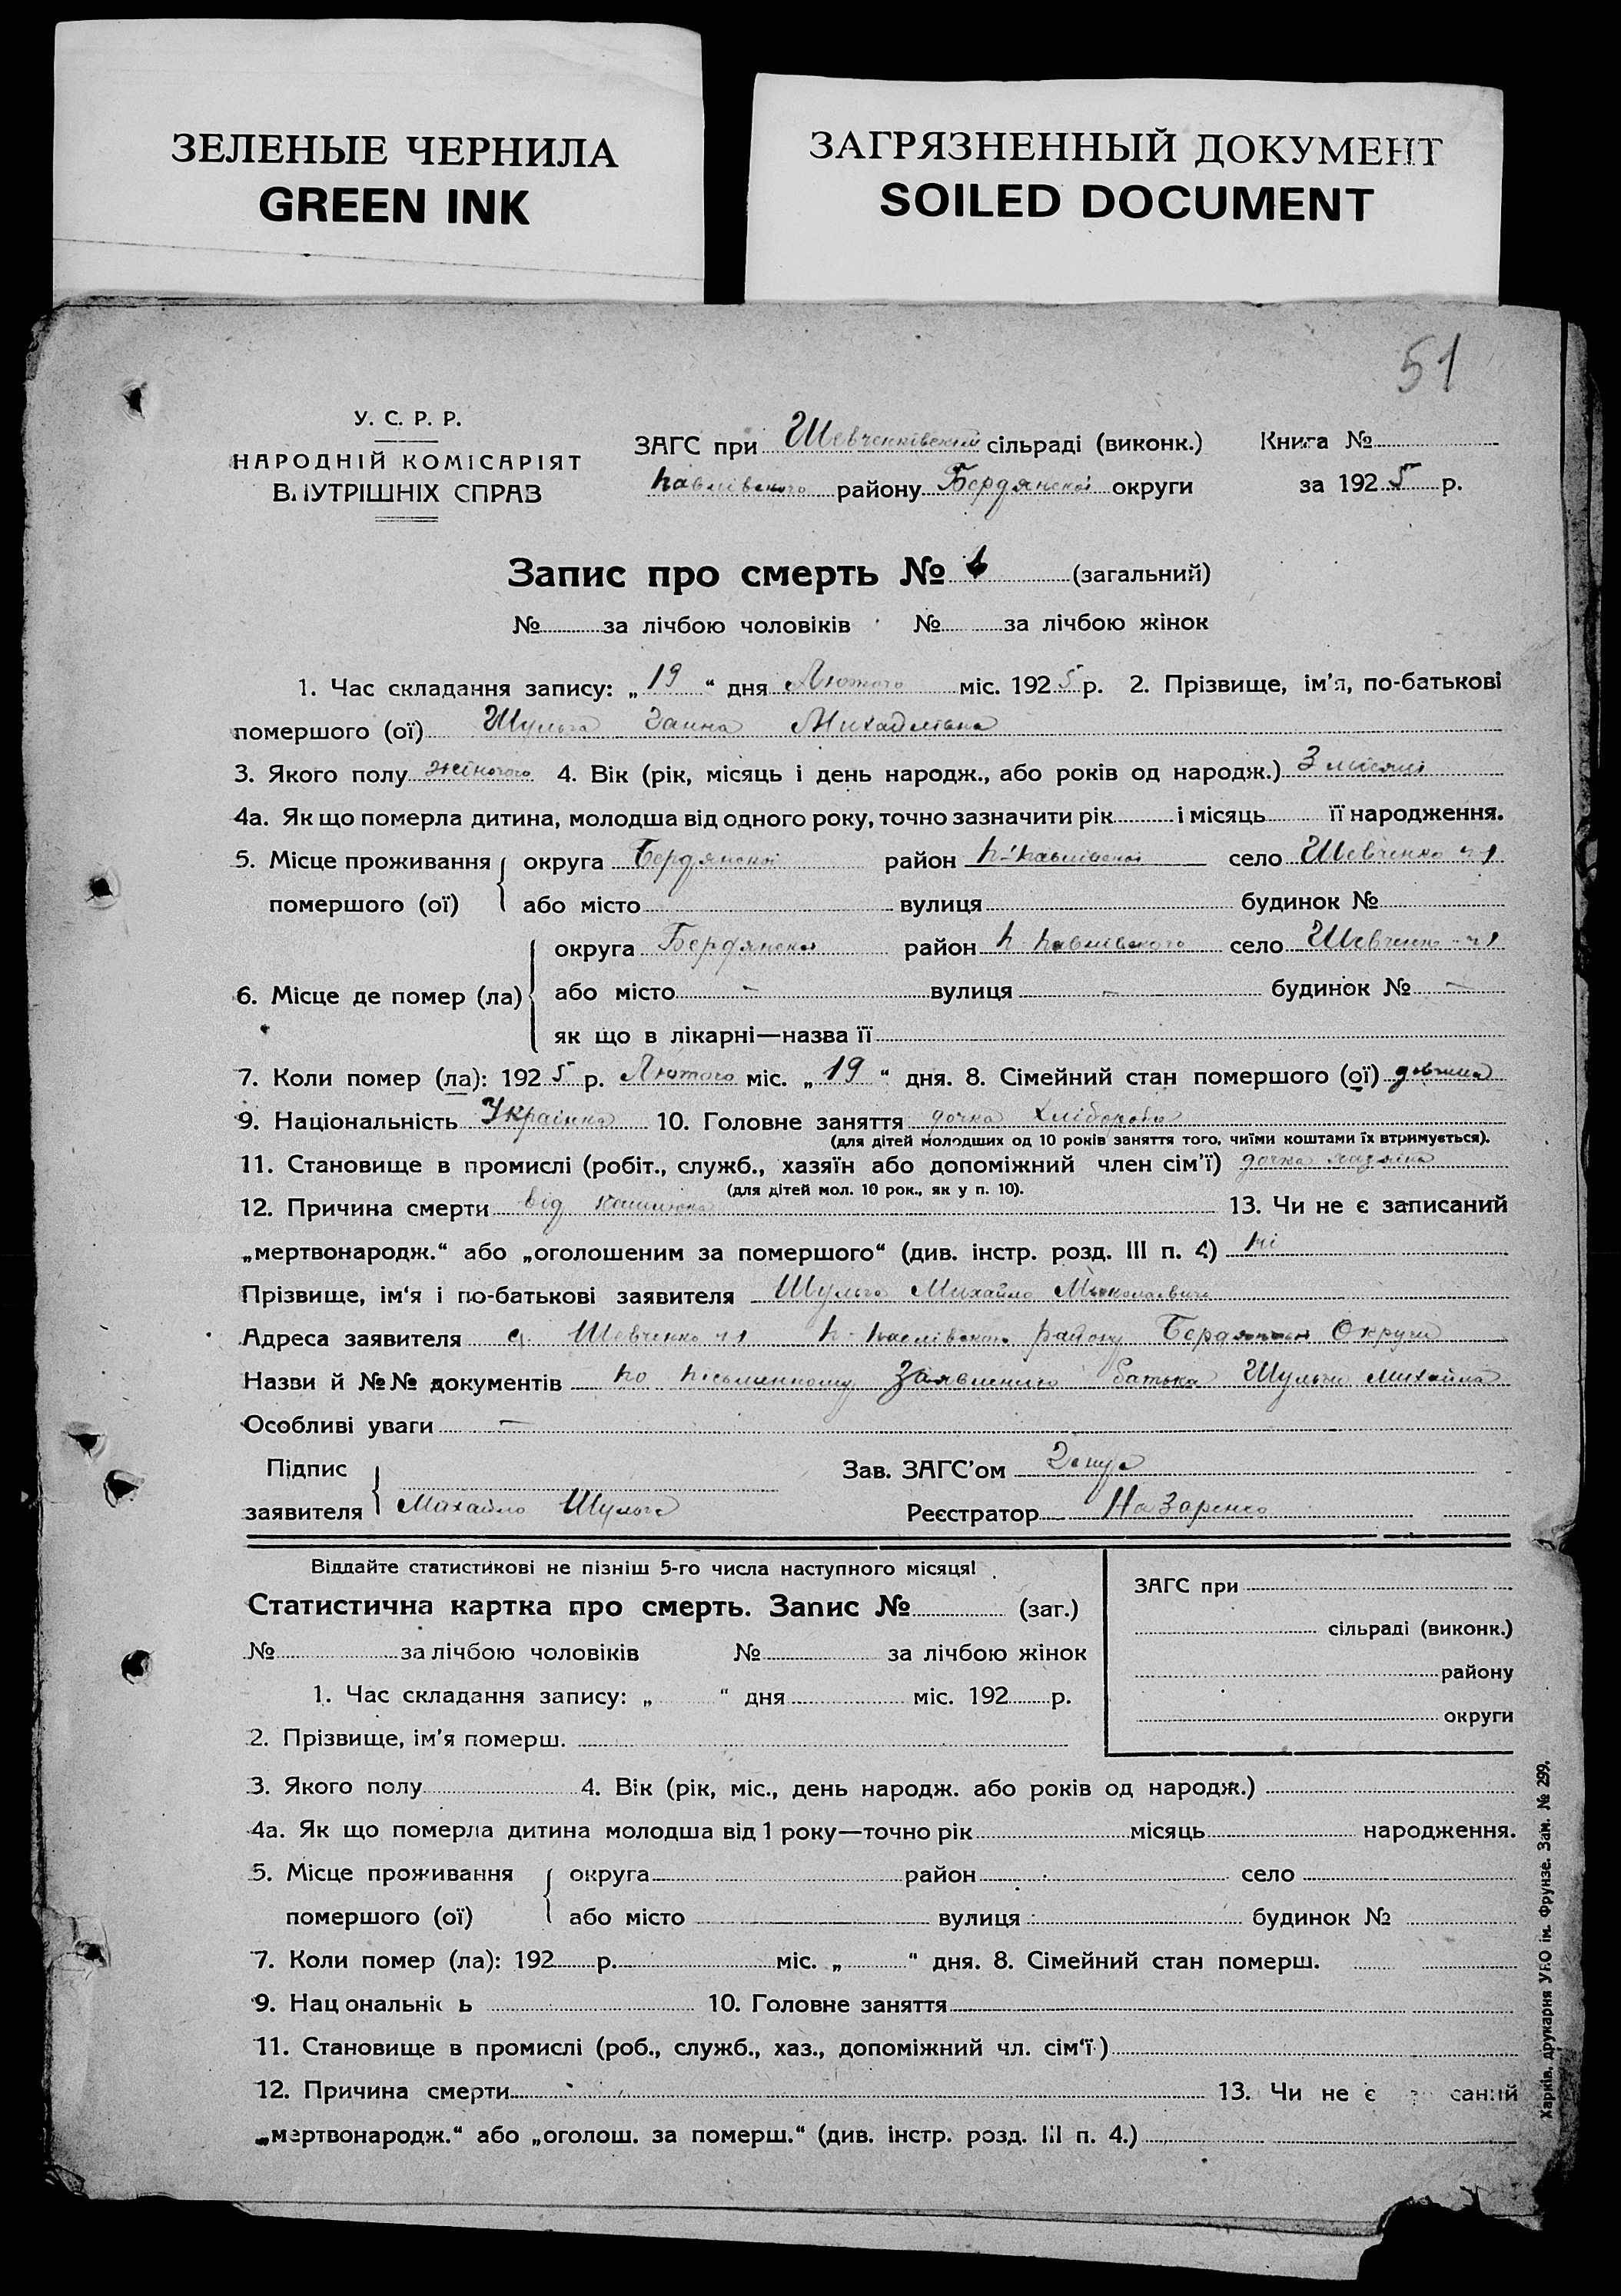 ЗЕЛЕНЫЕ ЧЕРНИЛА
GREEN INK
ЗАГРЯЗНЕННЫЙ ДОКУМЕНТ
SOILED DOCUMENT
51
У. С. Р. Р.
НАРОДНІЙ КОМІСАРІЯТ
ВНУТРІШНІХ СПРАВ
ЗАГС при Шевченківській сільраді (виконк.)
Павлівського району Бердянської округи
Книга №
за 1925 р.
Запис про смерть № 6 (загальний)
№ за лічбою чоловіків № за лічбою жінок
1. Час складання запису: „19“ дня Лютого міс. 1925 р. 2. Прізвище, ім'я, по-батькові
помершого (ої) Шульга Ганна Михайлівна
3. Якого полу жіночого 4. Вік (рік, місяць і день народж., або років од народж.) 3 місяці
4а. Як що померла дитина, молодша від одного року, точно зазначити рік і місяць її народження.
5. Місце проживання округа Бердянської район П-Павлівської село Шевченко
помершого (ої) або місто вулиця будинок №
округа Бердянської район П. Павлівського село Шевченко
6. Місце де помер (ла) або місто — вулиця — будинок № —
як що в лікарні—назва її
7. Коли помер (ла): 1925 р. Лютого міс. „19“ дня. 8. Сімейний стан помершого (ої)
9. Національність Українка 10. Головне заняття дочка хлібороба
(для дітей молодших од 10 років заняття того, чиїми коштами їх втримується).
11. Становище в промислі (робіт., служб., хазяїн або допоміжний член сім'ї) дочка хазяїна
(для дітей мол. 10 рок., як у п. 10).
12. Причина смерти від 13. Чи не є записаний
„мертвонародж.“ або „оголошеним за помершого“ (див. інстр. розд. III п. 4) ні
Прізвище, ім'я і по-батькові заявителя Шульга Михайло Миколаєвич
Адреса заявителя с. Шевченко П-Павлівського району Бердянської Округи
Назви й №№ документів по письменному Заявленню батька Шульги Михайла
Особливі уваги —
Підпис Зав. ЗАГС'ом
заявителя Михайло Шульга Реєстратор Назаренко
Віддайте статистикові не пізніш 5-го числа наступного місяця!
Статистична картка про смерть. Запис № (заг.)
№ за лічбою чоловіків № за лічбою жінок
1. Час складання запису: „ “ дня міс. 192 р.
2. Прізвище, ім'я померш.
ЗАГС при
сільраді (виконк.)
району
округи
3. Якого полу 4. Вік (рік, міс., день народж. або років од народж.)
4а. Як що померла дитина молодша від 1 року—точно рік місяць народження.
5. Місце проживання округа район село
помершого (ої) або місто вулиця будинок №
7. Коли помер (ла): 192 р. міс. „ “ дня. 8. Сімейний стан померш.
9. Нац ональніс ь 10. Головне заняття
11. Становище в промислі (роб., служб., хаз., допоміжний чл. сім'ї)
12. Причина смерти 13. Чи не є саний
„мертвонародж.“ або „оголош. за померш.“ (див. інстр. розд. III п. 4.)
Харків, друкарня УВО ім. Фрунзе. Зам. № 299.